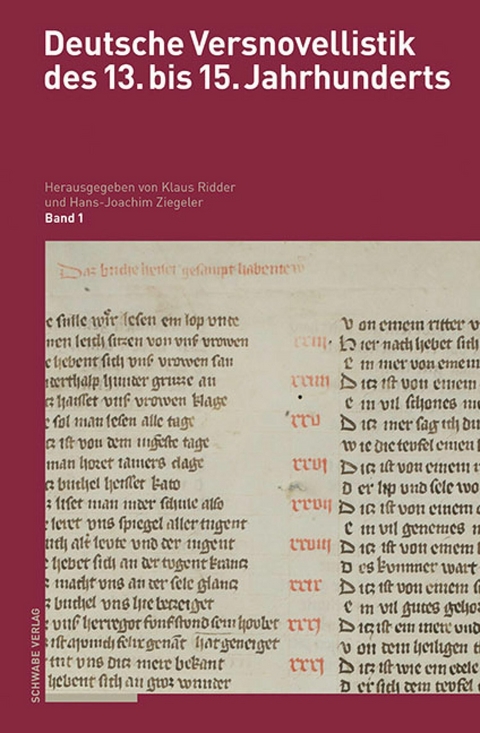 Deutsche Versnovellistik
des 13. bis 15. Jahrhunderts
Herausgegeben von Klaus Ridder
und Hans-Joachim Ziegeler
Band 1
e sulle wir lesen ein lop vnte
nen leich sitzen von vnß vrowen
e hebent sich vnß vrowen
hunder gruzze an
vnß vrowen klage
e sol man lesen alle tage
tz ist von dem iugeste tage
man horet iamers clage
tz buchel heisset kato
liset man inder schule also
leret vns spiegel aller tugent
leute vnd der iugent
e hebet sich an der tugent kranz
macht vns an der sele glanz
tz buchel vns hie bezeiget
vnß herregot
hat geneiget
tut vns ditz mere bekant
hebent sich an groz wunder
xxiii
xxiiii
xxv
xxvi
xxvii
xxviii
xxix
xxx
xxxi
Von einem ritter v
Hier nach hebet sich
Ein mer von einem
Ditz ist von einem
Ein vil schones me
Ditz mer sag ich du
Wie die teufel einen
Ditz ist von einem
Der lip vnd sele wo
Ditz ist von einem
Ein vil genemes m
Ditz ist von einem
Des kummer wart
Ditz ist von einem
Ein vil gutes geho
Ditz ist ein mere vnd
Von dem heiligen
Ditz ist wie ein edele
Der sich dem teufel
SCHWABE VERLAG